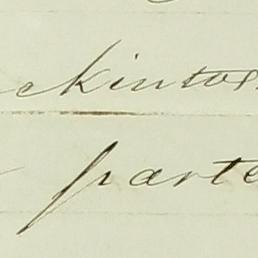 ckintos
parte